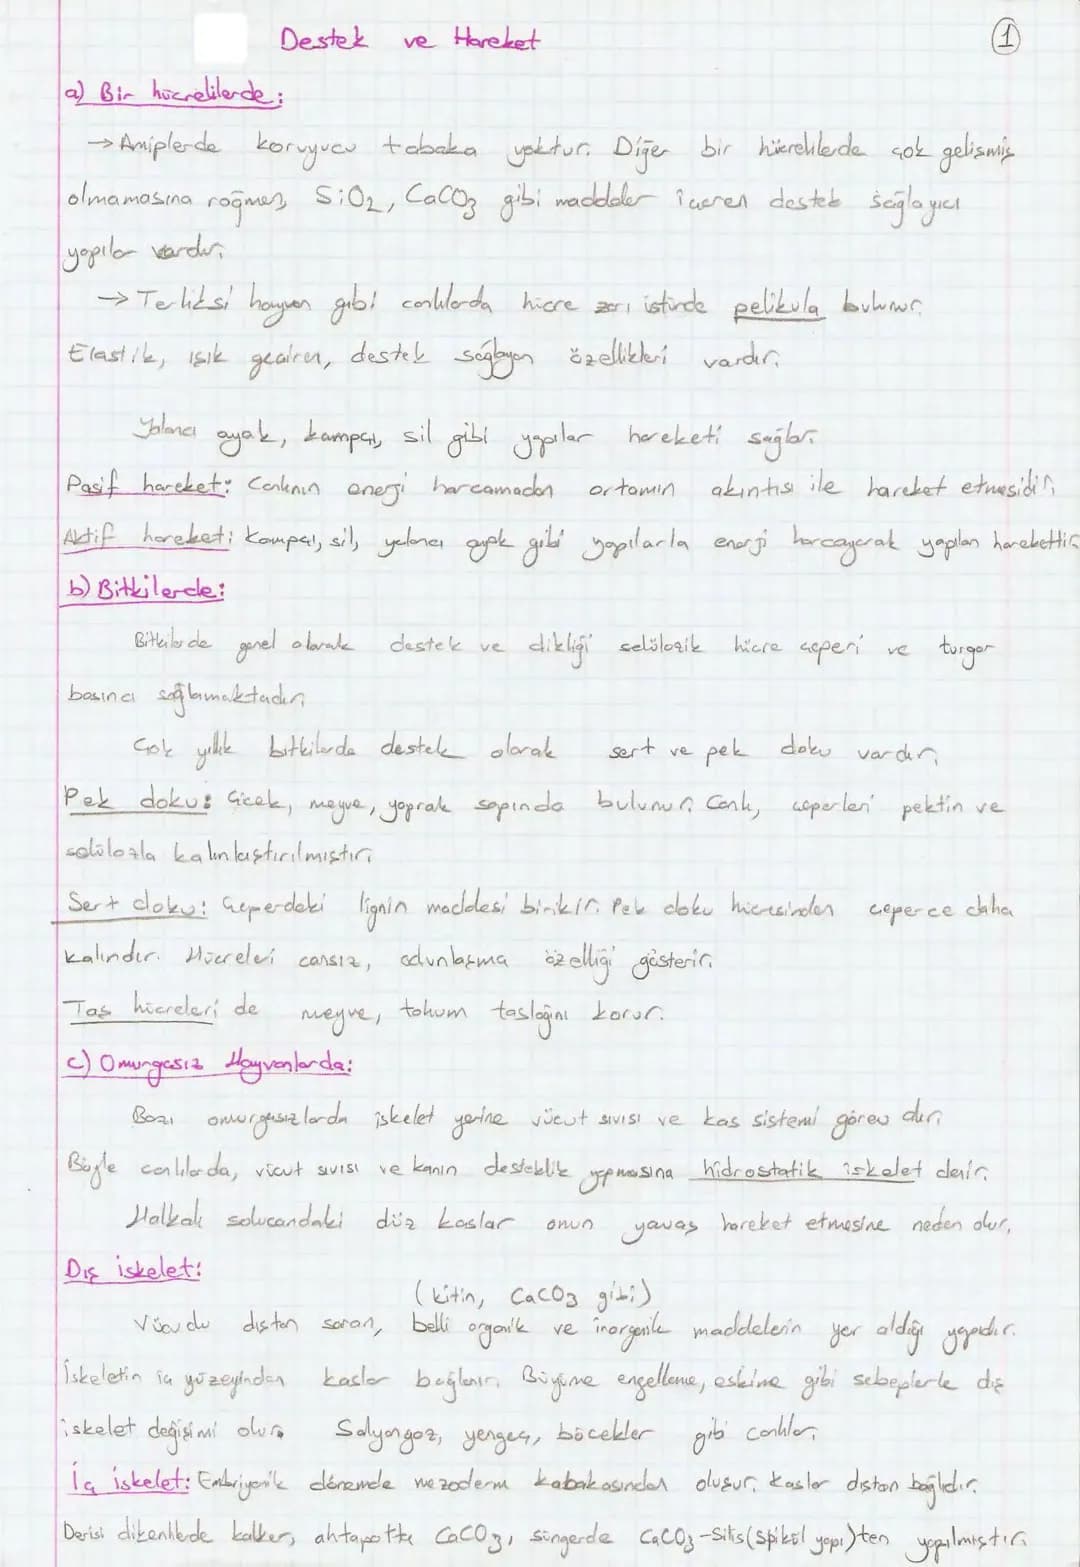 Destek ve Hareket
1
a) Bir hücrelilerde:
→ Amiplerde koruyucu tabaka yoktur. Diğer bir hücrelilerde çok gelişmiş
olmamasına rağmen, SiO2, CaCO3 gibi maddeler içeren destek sağlayıcı
yapılar vardır.
→ Terliksi hayvan gibi canlılarda hücre zarı üstünde pelikula bulunur.
Elastik, ışık geçiren, destek sağlayan özellikleri vardır.
Yalancı ayak, kamçı, sil gibi yapılar hareketi sağlar.
Pasif hareket: Canlının enerji harcamadan ortamın akıntısı ile hareket etmesidir.
Aktif hareket: Kamçı, sil, yalancı ayak gibi yapılarla enerji harcayarak yapılan harekettir.
b) Bitkilerde:
Bitkilerde genel olarak destek ve dikliği selülozik hücre çeperi ve turgor
basıncı sağlamaktadır.
Çok yıllık bitkilerde destek olarak sert ve pek doku vardır.
Pek doku: Çiçek, meyve, yaprak sapında bulunur. Canlı, çeperleri pektin ve
selülozla kalınlaştırılmıştır.
Sert doku: Çeperdeki lignin maddesi birikir. Pek doku hücresinden çeperce daha
kalındır. Hücreleri cansız, odunlaşma özelliği gösterir.
Taş hücreleri de meyve, tohum taslağını korur.
c) Omurgasız Hayvanlarda:
Bazı omurgasızlarda iskelet yerine vücut sıvısı ve kas sistemi görev alır.
Böyle canlılarda, vücut sıvısı ve kanın desteklik yapmasına hidrostatik iskelet denir.
Halkalı solucandaki düz kaslar onun yavaş hareket etmesine neden olur.
Dış iskelet:
(kitin, CaCO3 gibi)
Vücudu dıştan saran, belli organik ve inorganik maddelerin yer aldığı yapıdır.
İskeletin iç yüzeyinden kaslar bağlanır. Büyüme engelleme, eskime gibi sebeplerle dış
iskelet değişimi olur. Salyangoz, yengeç, böcekler gibi canlılar.
İç iskelet: Embriyonik dönemde mezoderm tabakasından oluşur. Kaslar dıştan bağlıdır.
Derisi dikenlilerde kalker, ahtapotta CaCO3, süngerde CaCO3-Silis (spikül yapı)'ten yapılmıştır.